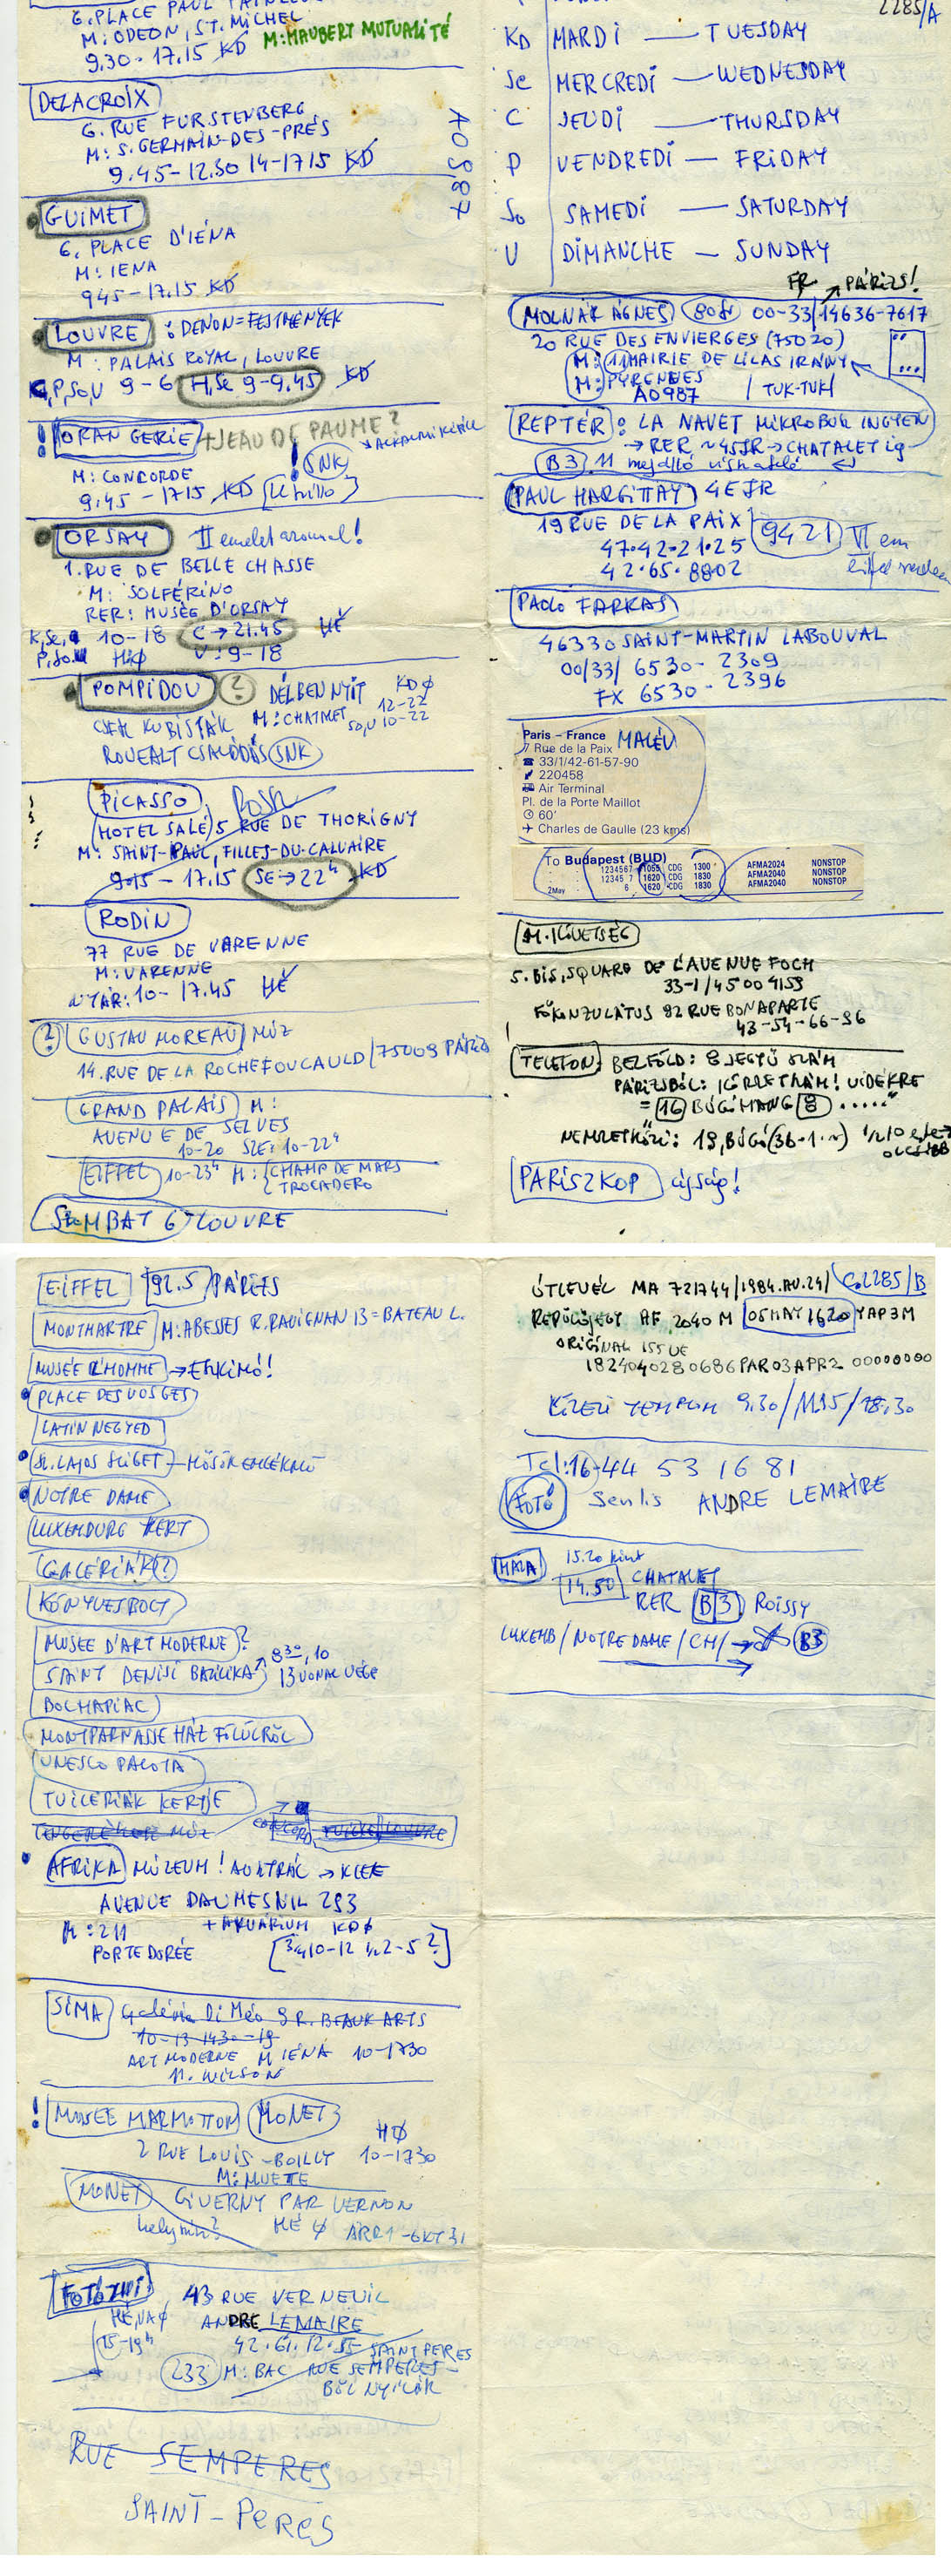 6. PLACE PAUL
M: ODEON, ST. MICHEL
9.30 - 17.15 KD M: MAUBERT MUTUALITÉ
DELACROIX
6. RUE FURSTENBERG
M: S. GERMAIN-DES-PRÉS
9.45 - 12.30 14-1715 KD
A0987
GUIMET
6. PLACE D'IÉNA
M: IENA
945 - 17.15 KD
LOUVRE : DENON=FESTMÉNYEK
M: PALAIS ROYAL, LOUVRE
P, SO, U 9-6 H, Se 9-9.45 KD
! ORANGERIE + JEAU DE PAUME?
SNK
M: CONCORDE
9.45 - 1715 KD
ORSAY II emelet azonnal!
1. RUE DE BELLE CHASSE
M: SOLFÉRINO
RER: MUSÉE D'ORSAY
K, Se, 10-18 C → 21.45 HÉ
P, SO. U: 9-18
POMPIDOU ? DÉLBEN NYIT KD Ø
12-22
CSEH KUBISTÁK M: CHATALET SO, U 10-22
ROUEALT CSALÓDÁS SNK
PICASSO
HOTEL SALÉ 5 RUE DE THORIGNY
M: SAINT-PAUL, FILLES-DU-CALVAIRE
9.15 - 17.15 SE → 22h KD
RODIN
77 RUE DE VARENNE
M: VARENNE
NYÁR: 10-17.45 HÉ
? GUSTAV MOREAU MÚZ
14. RUE DE LA ROCHEFOUCAULD / 75009 PÁRIZS
GRAND PALAIS M:
AVENUE DE SELVES
10-20 SZE: 10-22h
EIFFEL 10-23h M: CHAMP DE MARS
TROCADERO
SZOMBAT 6 LOUVRE
2285/A
KD MARDI — TUESDAY
Se MERCREDI — WEDNESDAY
C JEUDI — THURSDAY
P VENDREDI — FRIDAY
So SAMEDI — SATURDAY
U DIMANCHE — SUNDAY
FR PÁRIZS!
MOLNÁR ÁGNES 00-33/14636-7617
20 RUE DES ENVIERGES (75020)
M: 11 MAIRIE DE LILAS IRÁNY
M: PYRENEES
A0987 / TUK-TUK /
REPTÉR: LA NAVET MIKROBUSZ INGYEN
→ RER ~45FR → CHATALET ig
B3 11
PAUL HARGITTAY 4 EJR
19 RUE DE LA PAIX 9421 VI em
47·42·21·25
42·65·8802
PAOLO FARKAS
46330 SAINT-MARTIN LABOUVAL
00/33/ 6530-2309
FX 6530-2396
Paris – France MALÉV
7 Rue de la Paix
☎ 33/1/42-61-57-90
220458
Air Terminal
Pl. de la Porte Maillot
60'
✈ Charles de Gaulle (23 kms)
To Budapest (BUD)
1234567 1055 CDG 1300 AFMA2024 NONSTOP
12345 7 1620 CDG 1830 AFMA2040 NONSTOP
2May 6 1620 CDG 1830 AFMA2040 NONSTOP
M. KÖVETSÉG
5. BIS, SQUARE DE L'AVENUE FOCH
33-1/45 00 4159
FŐKONZULÁTUS 92 RUE BONAPARTE
43-54-66-96
TELEFON: BELFÖLD: 8 JEGYŰ SZÁM
PÁRIZSBÓL: VIDÉKRE
= 16 BÚGÓHANG 8 ....."
NEMZETKÖZI: 19, BÚGÓ
OLCSÓBB
PARISZKOP újság!
EIFFEL 92.5 PÁRIZS
MONTMARTRE M: ABESSES R. RAVIGNAN 13 = BATEAU L.
MUSÉE L'HOMME → ESZKIMÓ!
PLACE DES VOSGES
LATIN NEGYED
SZ. LAJOS SZIGET — HŐSÖK EMLÉKMŰ
NOTRE DAME
LUXEMBURG KERT
GALÉRIÁK (?)
KÖNYVESBOLT
MUSÉE D'ART MODERNE ?
SAINT DENISI BAZILIKA 8 30, 10
13 VONAL VÉGE
BOLHAPIAC
MONTPARNASSE HÁZ FÖLÜLRŐL
UNESCO PALOTA
TUILERIÁK KERTJE
AFRIKA MÚZEUM! AUSTRÁL → KLEE
AVENUE DAUMESNIL 293
+ AKVÁRIUM KD Ø
PORTE DORÉE
SIMA Galérie Di Méo 9 R. BEAUX ARTS
10-13 1430-19
ART MODERNE M IÉNA 10-1730
11. WILSON
! MUSÉE MARMOTTAN MONET
H Ø
2 RUE LOUIS-BOILLY 10-1730
M: MUETTE
MONET GIVERNY PAR VERNON
HÉ Ø
FOTÓZNI 43 RUE VERNEUIL
HÉ, VA Ø ANDRE LEMAIRE
15-19h 42.61.12.55 SAINT PERES
233 M: BAC RUE SEMPERES-
BŐL NYÍLIK
RUE SEMPERES
SAINT-PERES
ÚTLEVÉL MA 721744/1984. AU. 24/ C.2285/B
REPÜLŐJEGY AF 2040 M 05MAY 1620 YAP3M
ORIGINAL ISSUE
1824040280686PAR03APR2 00000000
KÖZELI TEMPLOM 9.30/11.15/18.30
Tel: 16-44 53 16 81
FOTÓ! Senlis ANDRE LEMAIRE
HAZA 15.20 kint
14.50 CHATALET
RER B3 ROISSY
LUXEMB / NOTRE DAME / CH / → B3